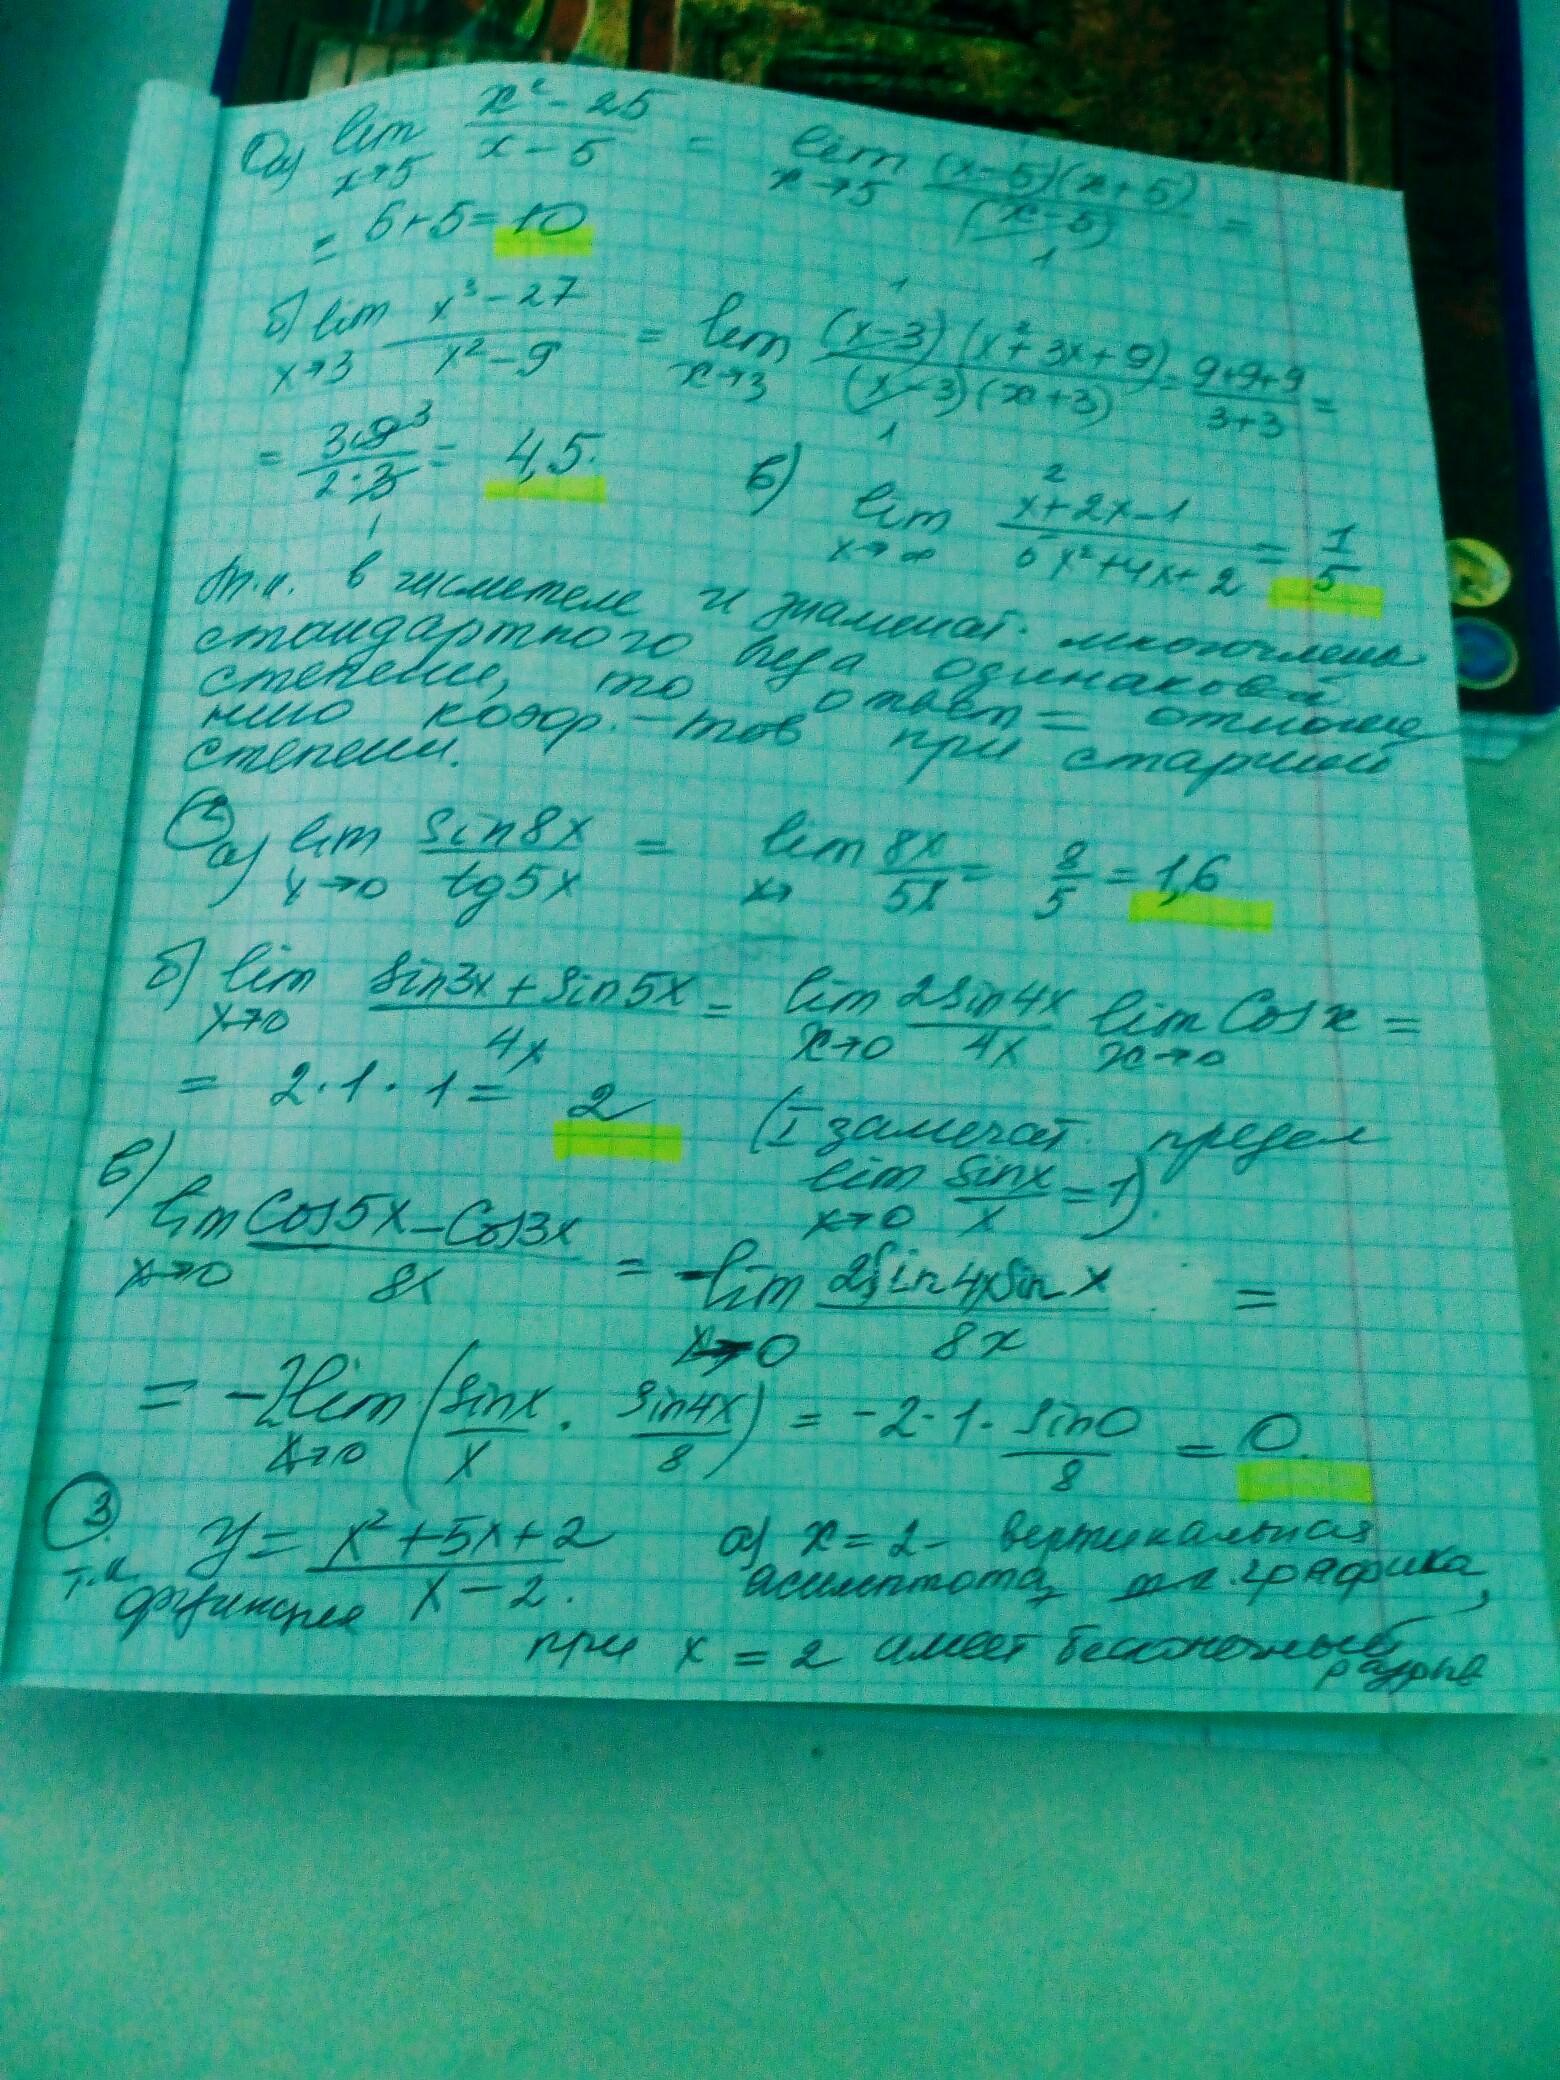 ① а) lim x→5 (x² - 25)/(x - 5) = lim x→5 (x-5)(x+5)/(x-5) 1 =
= 5+5 = 10
б) lim x→3 (x³ - 27)/(x² - 9) = lim x→3 1 (x-3)(x²+3x+9)/(x-3)(x+3) 1 = (9+9+9)/(3+3) =
= 3·9 3/2·3 1 = 4,5. в) lim x→∞ (x²+2x-1)/(5x²+4x+2) = 1/5
т.к. в числителе и знаменат. многочлены
стандартного вида одинаковой
степени, то ответ = отноше
нию коэфф.-тов при старшей
степени.
② а) lim x→0 sin8x/tg5x = lim x→ 8x/5x = 8/5 = 1,6
б) lim x→0 (sin3x + sin5x)/4x = lim x→0 2sin4x/4x lim x→0 Cosx =
= 2·1·1 = 2 (I замечат. предел
lim x→0 sinx/x = 1).
в) lim x→0 (Cos5x - Cos3x)/8x = -lim x→0 2Sin4xSinx/8x =
= -2lim x→0 (sinx/x · sin4x/8) = -2·1· sin0/8 = 0.
③. y = (x²+5x+2)/(x-2). а) x = 2 - вертикальная
асимптота графика,
т.к. функция при x = 2 имеет бесконечный
разрыв